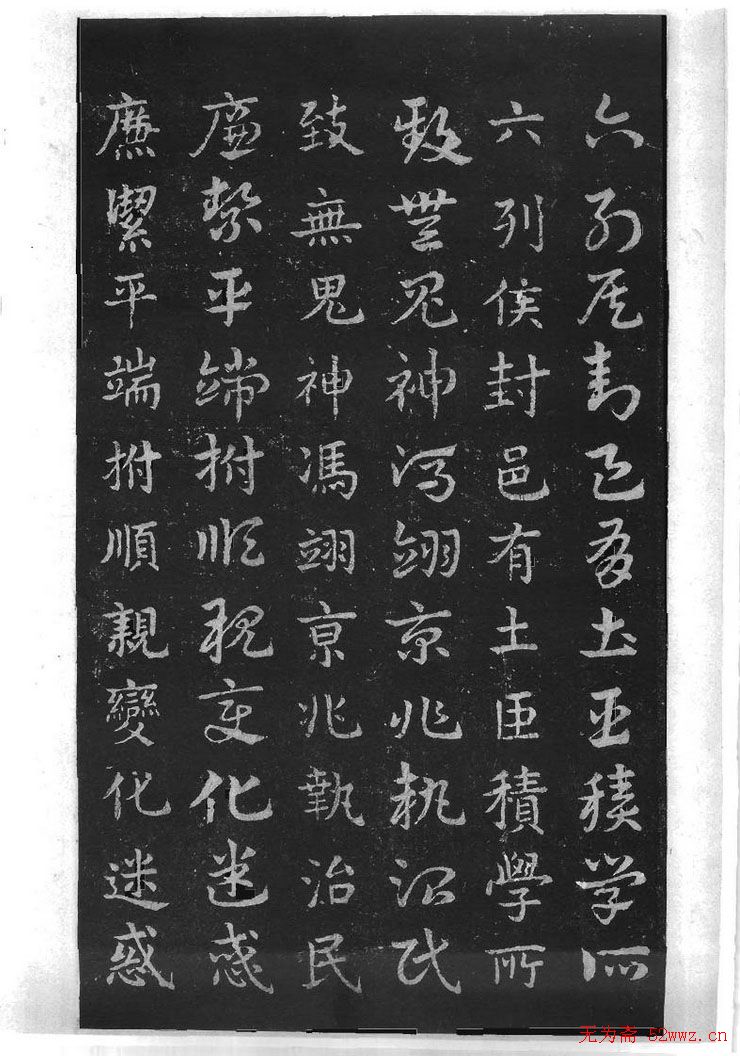 六列侯封邑有土臣積學所
六列侯封邑有土臣積學所
致無鬼神馮翊京兆執治民
致無鬼神馮翊亰兆執治民
廉絜平端拊順親變化迷惑
廉絜平端拊順親變化迷惑
无为斋 52wwz.cn